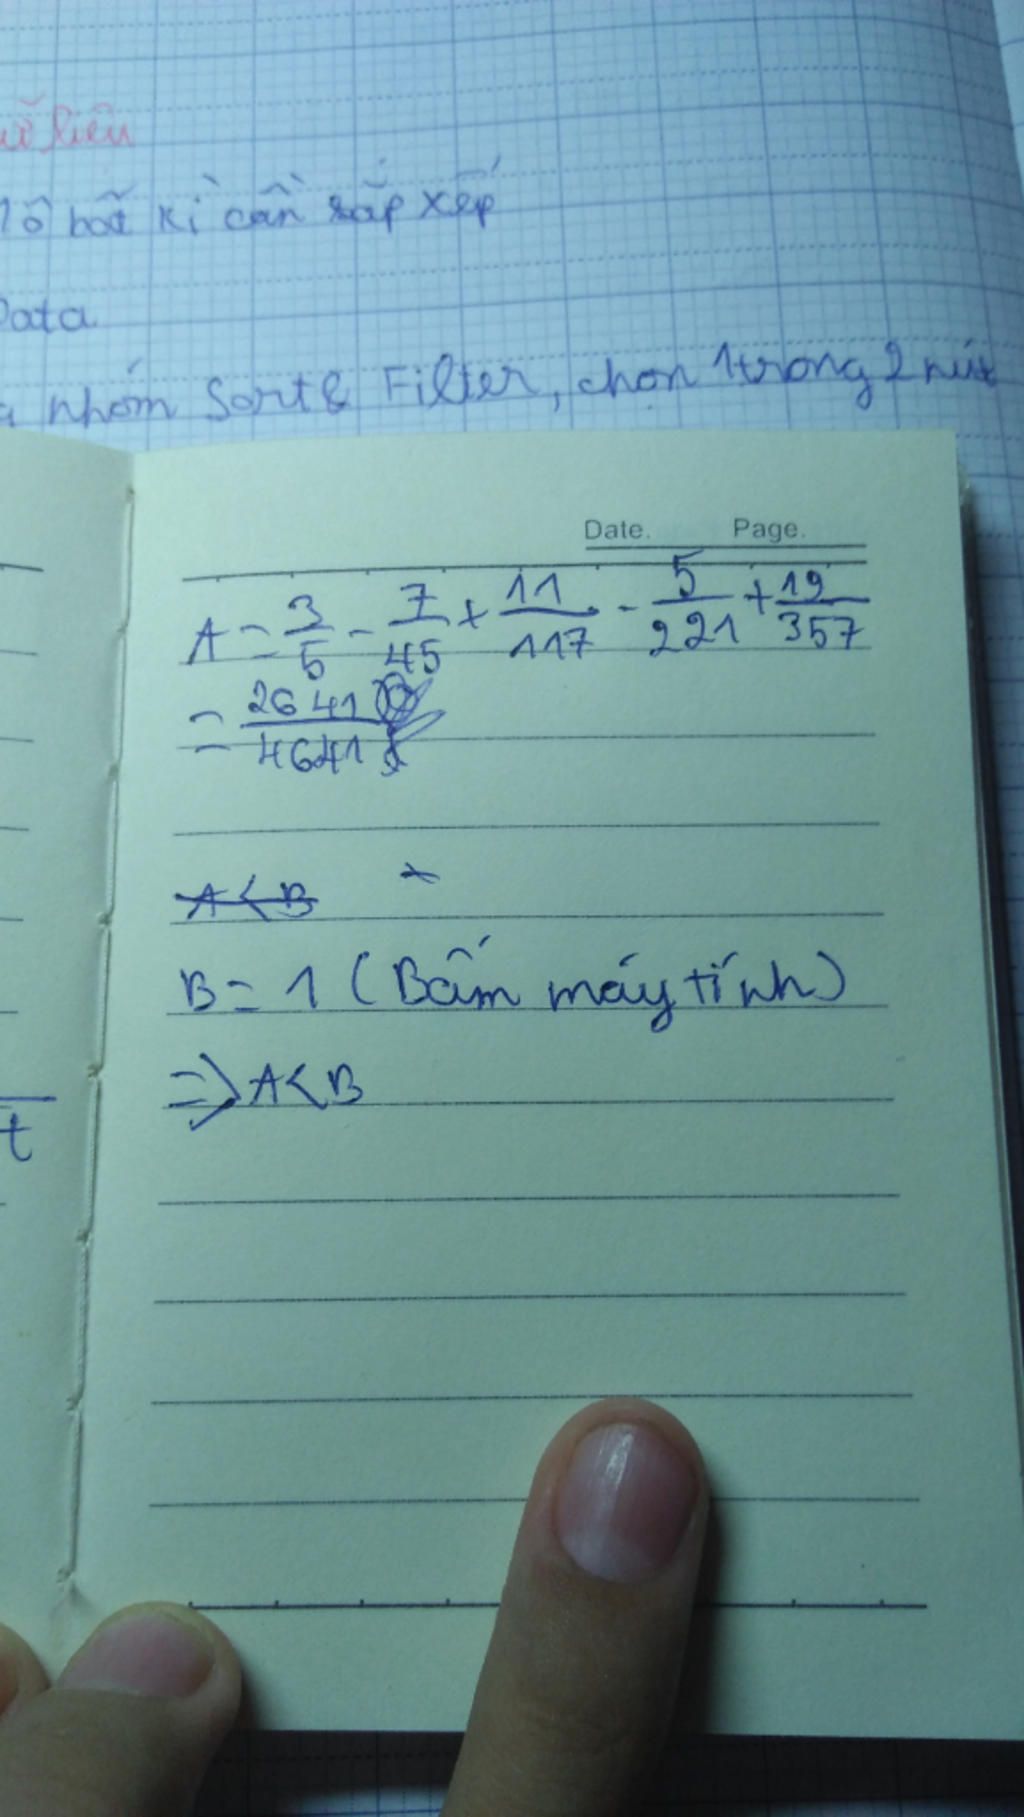 liệu
1 ô bất kì cần sắp xếp
Data
nhóm Sort & Filter, chọn 1 trong 2 nút
Date. Page.
A = 3/5 - 7/45 + 11/117 - 5/221 + 19/357
= 2641/4641
A < B
B = 1 (Bấm máy tính)
=> A < B
t